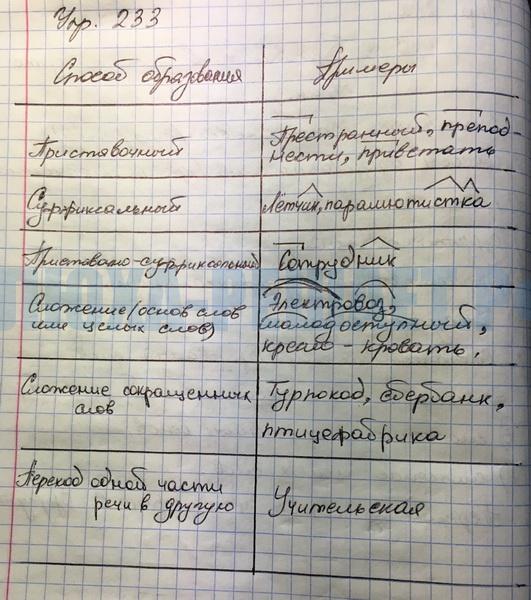 Упр. 233
Способ образвания Примеры
Приставочный Престранный, преподнести, привстать
Суффиксальный Лётчик, парашютистка
Приставочно-суффиксальный Сотрудник
Сложение (основ слов или целых слов) Электровоз, малодоступный, кресло-кровать.
Сложение сокращенных слов Турпоход, сбербанк, птицефабрика
Переход одной части речи в другую Учительская